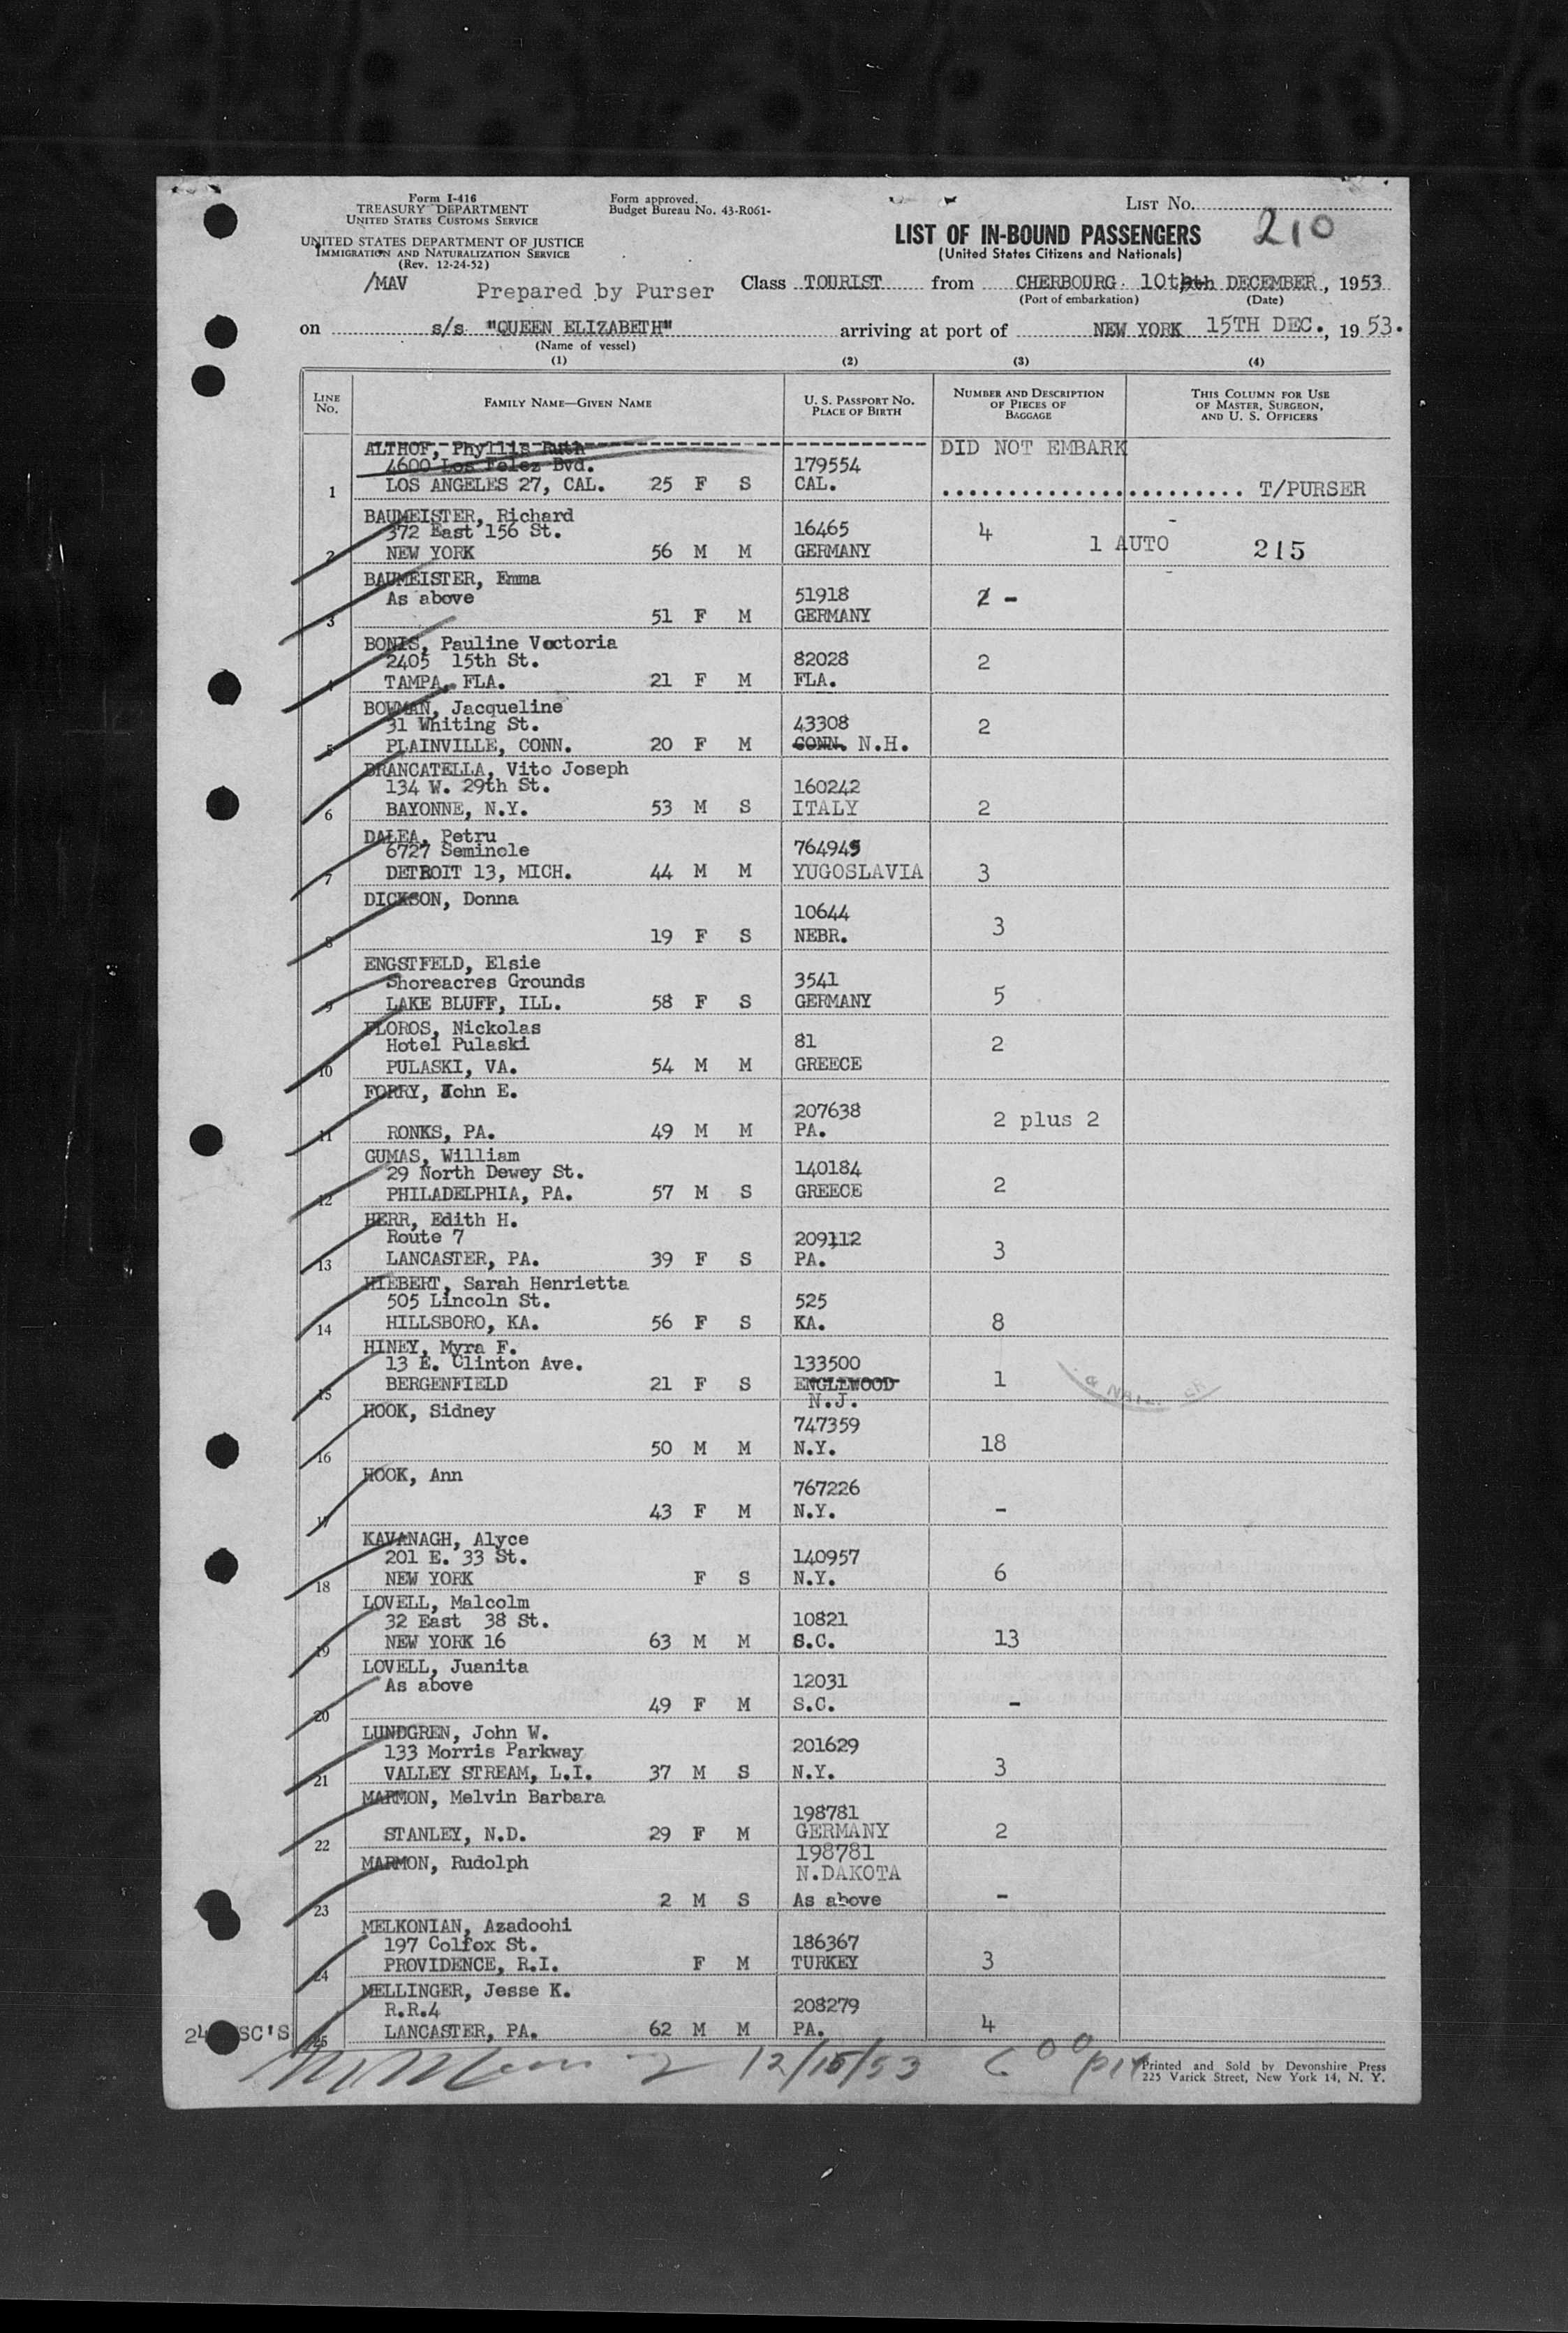 Form I-416
TREASURY DEPARTMENT
UNITED STATES CUSTOMS SERVICE
UNITED STATES DEPARTMENT OF JUSTICE
IMMIGRATION AND NATURALIZATION SERVICE
(Rev. 12-24-52)
/MAV
Prepared by Purser
Form approved.
Budget Bureau No. 43-R061-
LIST No. 210
LIST OF IN-BOUND PASSENGERS
(United States Citizens and Nationals)
Class TOURIST from CHERBOURG. 10th DECEMBER, 1953
(Port of embarkation) (Date)
on s/s "QUEEN ELIZABETH" arriving at port of NEW YORK 15TH DEC., 1953.
(Name of vessel)
(1) (2) (3) (4)
LINE No. FAMILY NAME—GIVEN NAME U. S. PASSPORT No. PLACE OF BIRTH NUMBER AND DESCRIPTION OF PIECES OF BAGGAGE THIS COLUMN FOR USE OF MASTER, SURGEON, AND U. S. OFFICERS
ALTHOF, Phyllis Ruth DID NOT EMBARK
4600 Los Felez Bvd. 179554
1 LOS ANGELES 27, CAL. 25 F S CAL. T/PURSER
BAUMEISTER, Richard
372 East 156 St. 16465 4
2 NEW YORK 56 M M GERMANY 1 AUTO 215
BAUMEISTER, Emma
As above 51918 2 -
3 51 F M GERMANY
BONIS, Pauline Voctoria
2405 15th St. 82028 2
4 TAMPA, FLA. 21 F M FLA.
BOWMAN, Jacqueline
31 Whiting St. 43308 2
5 PLAINVILLE, CONN. 20 F M CONN. N.H.
BRANCATELLA, Vito Joseph
134 W. 29th St. 160242
6 BAYONNE, N.Y. 53 M S ITALY 2
DALEA, Petru
6727 Seminole 764945
7 DETROIT 13, MICH. 44 M M YUGOSLAVIA 3
DICKSON, Donna
10644
8 19 F S NEBR. 3
ENGSTFELD, Elsie
Shoreacres Grounds 3541
9 LAKE BLUFF, ILL. 58 F S GERMANY 5
FLOROS, Nickolas
Hotel Pulaski 81 2
10 PULASKI, VA. 54 M M GREECE
FORRY, John E.
207638 2 plus 2
11 RONKS, PA. 49 M M PA.
GUMAS, William
29 North Dewey St. 140184
12 PHILADELPHIA, PA. 57 M S GREECE 2
HERR, Edith H.
Route 7 209112
13 LANCASTER, PA. 39 F S PA. 3
HIEBERT, Sarah Henrietta
505 Lincoln St. 525
14 HILLSBORO, KA. 56 F S KA. 8
HINEY, Myra F.
13 E. Clinton Ave. 133500
15 BERGENFIELD 21 F S ENGLEWOOD 1
N.J.
HOOK, Sidney
747359
16 50 M M N.Y. 18
HOOK, Ann
767226
17 43 F M N.Y. -
KAVANAGH, Alyce
201 E. 33 St. 140957
18 NEW YORK F S N.Y. 6
LOVELL, Malcolm
32 East 38 St. 10821
19 NEW YORK 16 63 M M S.C. 13
LOVELL, Juanita
As above 12031
20 49 F M S.C. -
LUNDGREN, John W.
133 Morris Parkway 201629
21 VALLEY STREAM, L.I. 37 M S N.Y. 3
MARMON, Melvin Barbara
198781
22 STANLEY, N.D. 29 F M GERMANY 2
MARMON, Rudolph 198781
N.DAKOTA
23 2 M S As above -
MELKONIAN, Azadoohi
197 Colfox St. 186367
24 PROVIDENCE, R.I. F M TURKEY 3
MELLINGER, Jesse K.
R.R.4 208279
25 LANCASTER, PA. 62 M M PA. 4
12/15/53 6 00 pm
Printed and Sold by Devonshire Press
225 Varick Street, New York 14, N. Y.